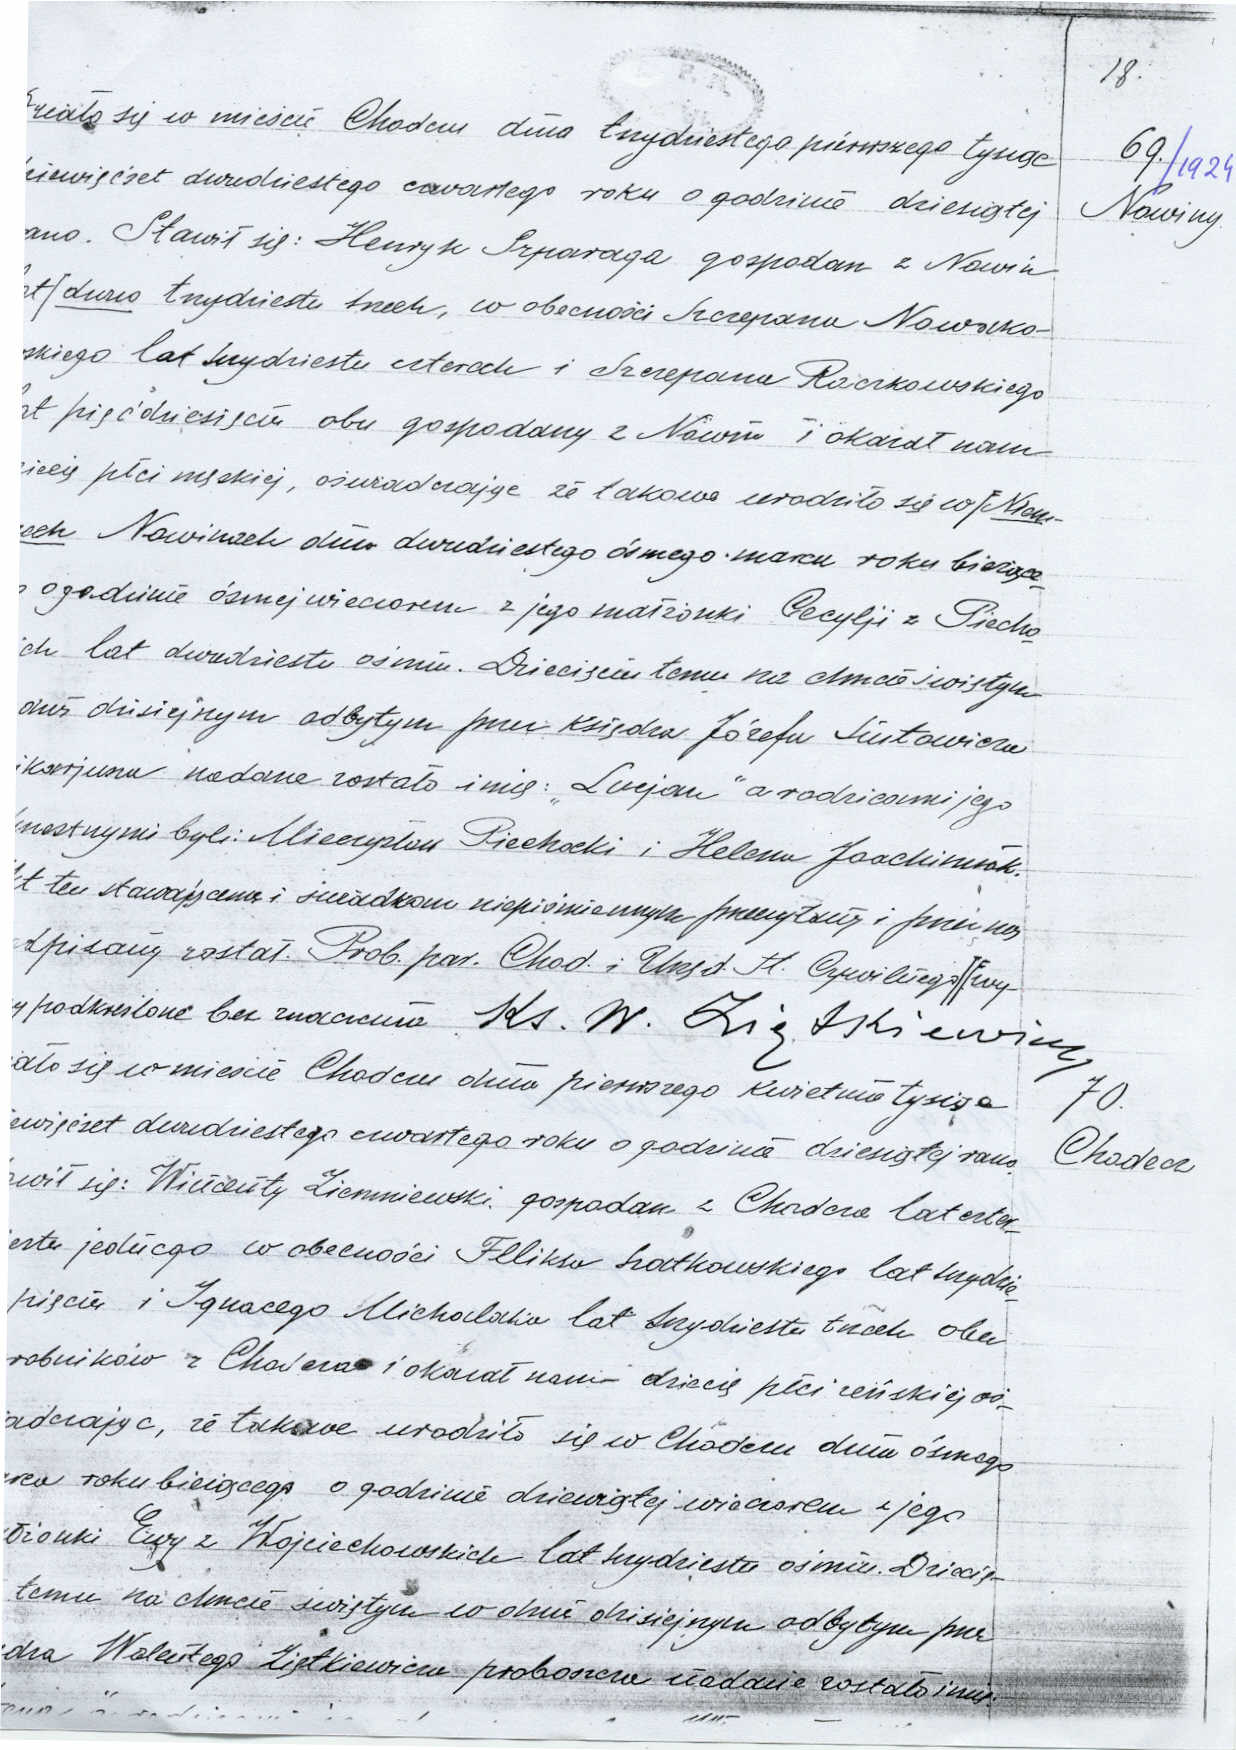 18.
69./1924
Nowiny.
działo się w mieście Chodczu dnia trzydziestego pierwszego tysiąc
dziewięćset dwudziestego czwartego roku o godzinie dziesiątej
rano. Stawił się: Henryk Szparaga gospodarz z Nowin
lat/dwu trzydziestu trzech, w obecności Szczepana Nowako-
skiego lat trzydziestu czterech i Szczepana Raczkowskiego
lat pięćdziesięciu obu gospodarzy z Nowin i okazał nam
dziecię płci męskiej, oświadczając że takowe urodziło się w/Niem-
cach Nowinach dnia dwudziestego ósmego marca roku bieżące-
o godzinie ósmej wieczorem z jego małżonki Cecylji z Piecho-
ich lat dwudziestu ośmiu. Dziecięciu temu na chrzcie świętym
dniu dzisiejszym odbytym przez Księdza Józefa
ikarjusza nadane zostało imię: „Lucjan” a rodzicami jego
chrzestnymi byli: Mieczysław Piechocki i Helena Joachimiak.
Akt ten stawającemu i świadkom niepiśmiennym przeczytany i przez nas
podpisany został. Prob. par. Chod. i Urzęd. St. Cywilnego//wy-
y podkreślone bez znaczenia Ks. W. Ziętkiewicz
70.
Chodecz
działo się w mieście Chodczu dnia pierwszego kwietnia tysiąc
dziewięćset dwudziestego czwartego roku o godzinie dziesiątej rano.
Stawił się: Wincenty Ziemniewski gospodarz z Chodcza lat czter-
dziestu jednego w obecności Feliksa Szatkowskiego lat trzydzie-
pięciu i Ignacego Michalaka lat trzydziestu trzech obu
robników z Chodcza i okazał nam dziecię płci żeńskiej oś-
wiadczając, że takowe urodziło się w Chodczu dnia ósmego
marca roku bieżącego o godzinie dziewiątej wieczorem z jego
małżonki Ewy z Wojciechowskich lat trzydziestu ośmiu. Dziecię-
temu na chrzcie świętym w dniu dzisiejszym odbytym przez
Księdza Walentego Ziętkiewicza proboszcza nadane zostało imię: